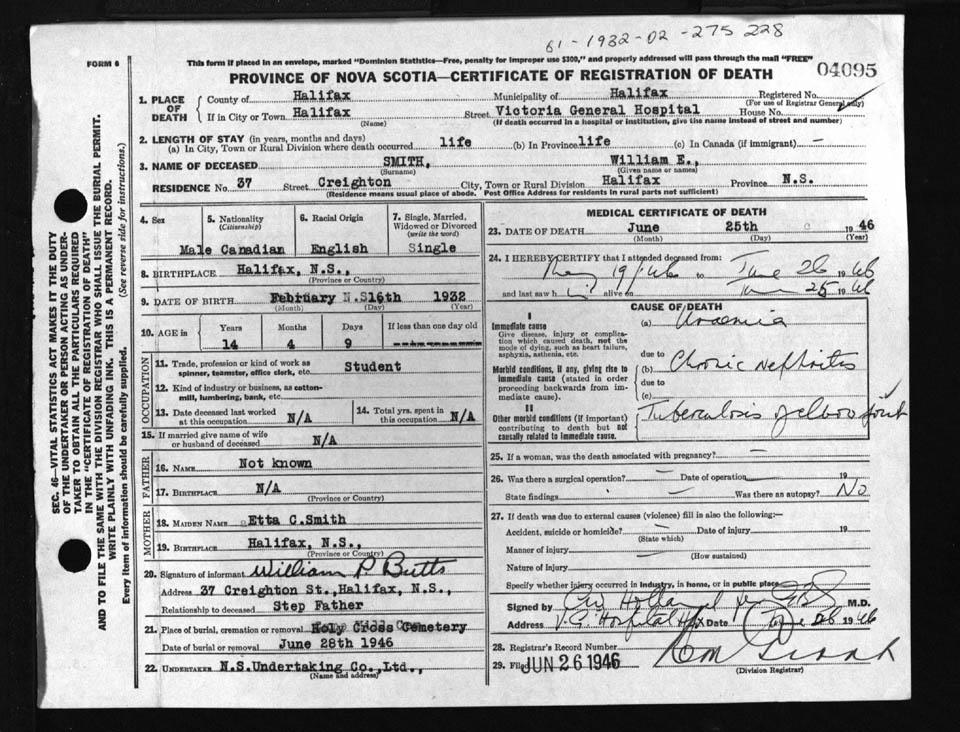 61-1932-02-275 228
FORM 6
This form if placed in an envelope, marked "Dominion Statistics—Free, penalty for improper use $300," and properly addressed will pass through the mail "FREE"
PROVINCE OF NOVA SCOTIA—CERTIFICATE OF REGISTRATION OF DEATH
04095
1. PLACE OF DEATH
County of Halifax Municipality of Halifax Registered No.
(For use of Registrar General only)
If in City or Town Halifax Street Victoria General Hospital House No.
(Name) (If death occurred in a hospital or institution, give the name instead of street and number)
2. LENGTH OF STAY (in years, months and days)
(a) In City, Town or Rural Division where death occurred life (b) In Province life (c) In Canada (if immigrant) —
3. NAME OF DECEASED SMITH, William E.,
(Surname) (Given name or names)
RESIDENCE No. 37 Street Creighton City, Town or Rural Division Halifax Province N.S.
(Residence means usual place of abode. Post Office Address for residents in rural parts not sufficient)
4. Sex 5. Nationality (Citizenship) 6. Racial Origin 7. Single, Married, Widowed or Divorced (write the word)
Male Canadian English Single
8. BIRTHPLACE Halifax, N.S.,
(Province or Country)
9. DATE OF BIRTH February N.S 16th 1932
(Month) (Day) (Year)
10. AGE in Years Months Days If less than one day old
14 4 9 ----------
OCCUPATION
11. Trade, profession or kind of work as spinner, teamster, office clerk, etc. Student
12. Kind of industry or business, as cotton-mill, lumbering, bank, etc.
13. Date deceased last worked at this occupation N/A 14. Total yrs. spent in this occupation N/A
15. If married give name of wife or husband of deceased N/A
FATHER
16. NAME Not known
17. BIRTHPLACE N/A
(Province or Country)
MOTHER
18. MAIDEN NAME Etta C.Smith
19. BIRTHPLACE Halifax, N.S.,
(Province or Country)
20. Signature of informant William P. Butts
Address 37 Creighton St.,Halifax, N.S.,
Relationship to deceased Step Father
21. Place of burial, cremation or removal Holy Cross Cemetery
Date of burial or removal June 28th 1946
22. UNDERTAKER N.S.Undertaking Co.,Ltd.,
(Name and address)
MEDICAL CERTIFICATE OF DEATH
23. DATE OF DEATH June 25th 1946
(Month) (Day) (Year)
24. I HEREBY CERTIFY that I attended deceased from:
May 19/46 to June 26 1946
and last saw him alive on June 25 1946
CAUSE OF DEATH
I
Immediate cause
Give disease, injury or complication which caused death, not the mode of dying, such as heart failure, asphyxia, asthenia, etc.
(a) Uraemia
due to
Morbid conditions, if any, giving rise to immediate cause (stated in order proceeding backwards from immediate cause).
(b) Chronic nephritis
due to
(c)
II
Other morbid conditions (if important) contributing to death but not causally related to immediate cause.
Tuberculosis of elbow joint
25. If a woman, was the death associated with pregnancy? —
26. Was there a surgical operation? — Date of operation 19
State findings — Was there an autopsy? No
27. If death was due to external causes (violence) fill in also the following:—
Accident, suicide or homicide? — Date of injury 19
(State which)
Manner of injury —
(How sustained)
Nature of injury
Specify whether injury occurred in industry, in home, or in public place
Signed by M.D.
Address V.G. Hospital Hfx Date June 26 1946
28. Registrar's Record Number
29. Filed JUN 26 1946
(Division Registrar)
SEC. 46—VITAL STATISTICS ACT MAKES IT THE DUTY
OF THE UNDERTAKER OR PERSON ACTING AS UNDER-
TAKER TO OBTAIN ALL THE PARTICULARS REQUIRED
IN THE "CERTIFICATE OF REGISTRATION OF DEATH"
AND TO FILE THE SAME WITH THE DIVISION REGISTRAR WHO SHALL ISSUE THE BURIAL PERMIT.
WRITE PLAINLY WITH UNFADING INK. THIS IS A PERMANENT RECORD.
Every item of information should be carefully supplied. (See reverse side for instructions.)